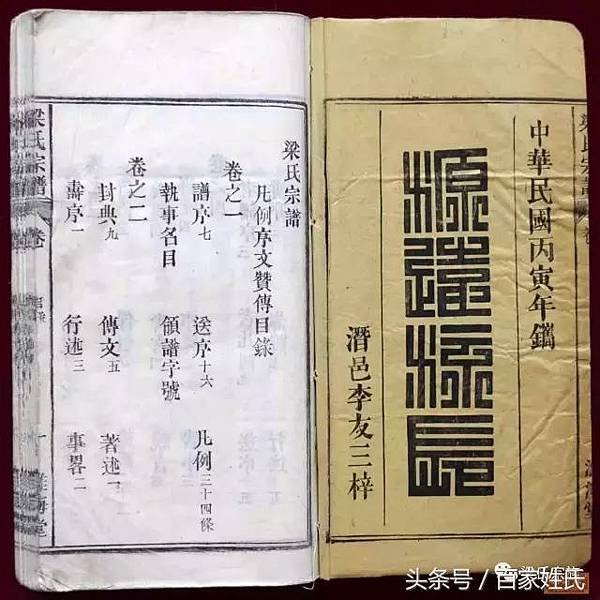 中華民國丙寅年鐫
源遠流長
潛邑李友三梓
梁氏宗譜
凡例序文贊傳目錄
卷之一
譜序七 送序十六 凡例三十四條
執事名目 領譜字號
卷之二
封典九 傳文五 著述一
壽序一 行述三 事畧二
梁氏宗譜 卷
头条号 / 百家姓氏